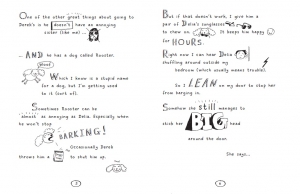 One of the other great things about going to
Derek's is he doesn't have an annoying
sister (like me)
...AND he has a dog called Rooster.
Which I know is a stupid name
for a dog, but I'm getting used
to it (sort of).
Sometimes Rooster can be
almost as annoying as Delia. Especially when
he won't stop
BARKING!
Occasionally Derek
throws him a
to shut him up.
5
But if that doesn't work, I give him a
pair of Delia's sunglasses
to chew on
It keeps him happy
for HOURS.
Right now I can hear Delia
shuffling around outside my
bedroom (which usually means trouble).
So I LEAN on my door to stop her
from barging in.
Somehow she still manages to
stick her BIG head
around the door.
She says...
6